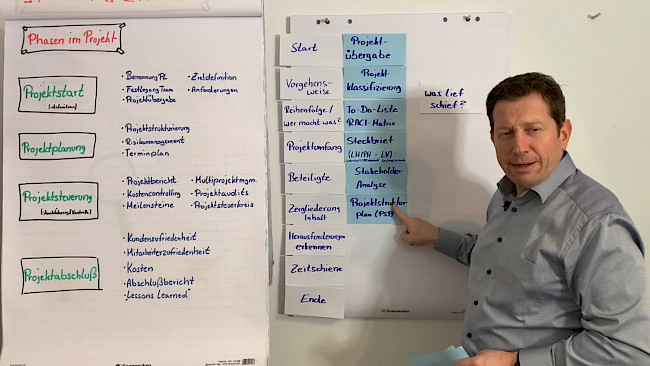 Phasen im Projekt
Projektstart
(Definition)
• Benennung PL
• Festlegung Team
• Projektübergabe
• Zieldefinition
• Anforderungen
Projektplanung
• Projektstrukturierung
• Risikomanagement
• Terminplan
Projektsteuerung
• Projektbericht
• Kostencontrolling
• Meilensteine
• Multiprojektmgm.
• Projektaudits
• Projektsteuerkreis
Projektabschluß
• Kundenzufriedenheit
• Mitarbeiterzufriedenheit
• Kosten
• Abschlußbericht
• "Lessons Learned"
Start
Projekt-
übergabe
Vorgehens-
weise
Projekt-
klassifizierung
Reihenfolge/
wer macht was?
To-Do-Liste
RACI-Matrix
Projektumfang
Steckbrief
(LH/PH - LV)
Beteiligte
Stakeholder-
Analyse
Zergliederung
Inhalt
Projektstruktur
plan (PSP)
Herausforderungen
erkennen
Zeitschiene
Ende
was lief
schief?